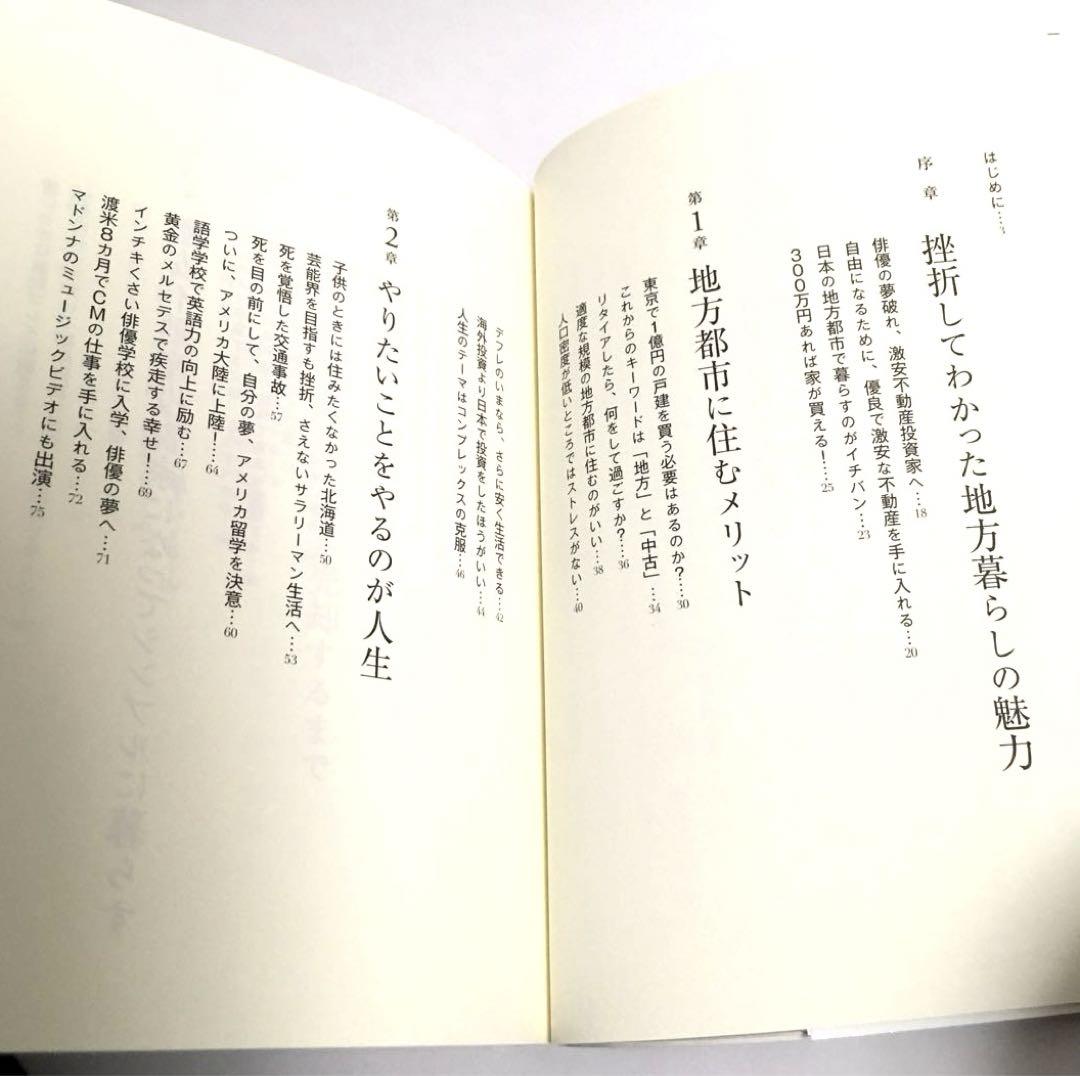 はじめに…3
序章 挫折してわかった地方暮らしの魅力
俳優の夢破れ、激安不動産投資家へ…18
自由になるために、優良で激安な不動産を手に入れる…20
日本の地方都市で暮らすのがイチバン…23
300万円あれば家が買える!…25
第1章 地方都市に住むメリット
東京で1億円の戸建を買う必要はあるのか?…30
これからのキーワードは「地方」と「中古」…34
リタイアしたら、何をして過ごすか?…36
適度な規模の地方都市に住むのがいい…38
人口密度が低いところではストレスがない…40
デフレのいまなら、さらに安く生活できる…42
海外投資より日本で投資をしたほうがいい…44
人生のテーマはコンプレックスの克服…46
第2章 やりたいことをやるのが人生
子供のときには住みたくなかった北海道…50
芸能界を目指すも挫折、さえないサラリーマン生活へ…53
死を覚悟した交通事故…57
死を目の前にして、自分の夢、アメリカ留学を決意…60
ついに、アメリカ大陸に上陸!…64
語学学校で英語力の向上に励む…67
黄金のメルセデスで疾走する幸せ!…69
インチキくさい俳優学校に入学、俳優の夢へ…71
渡米8カ月でCMの仕事を手に入れる…72
マドンナのミュージックビデオにも出演…75